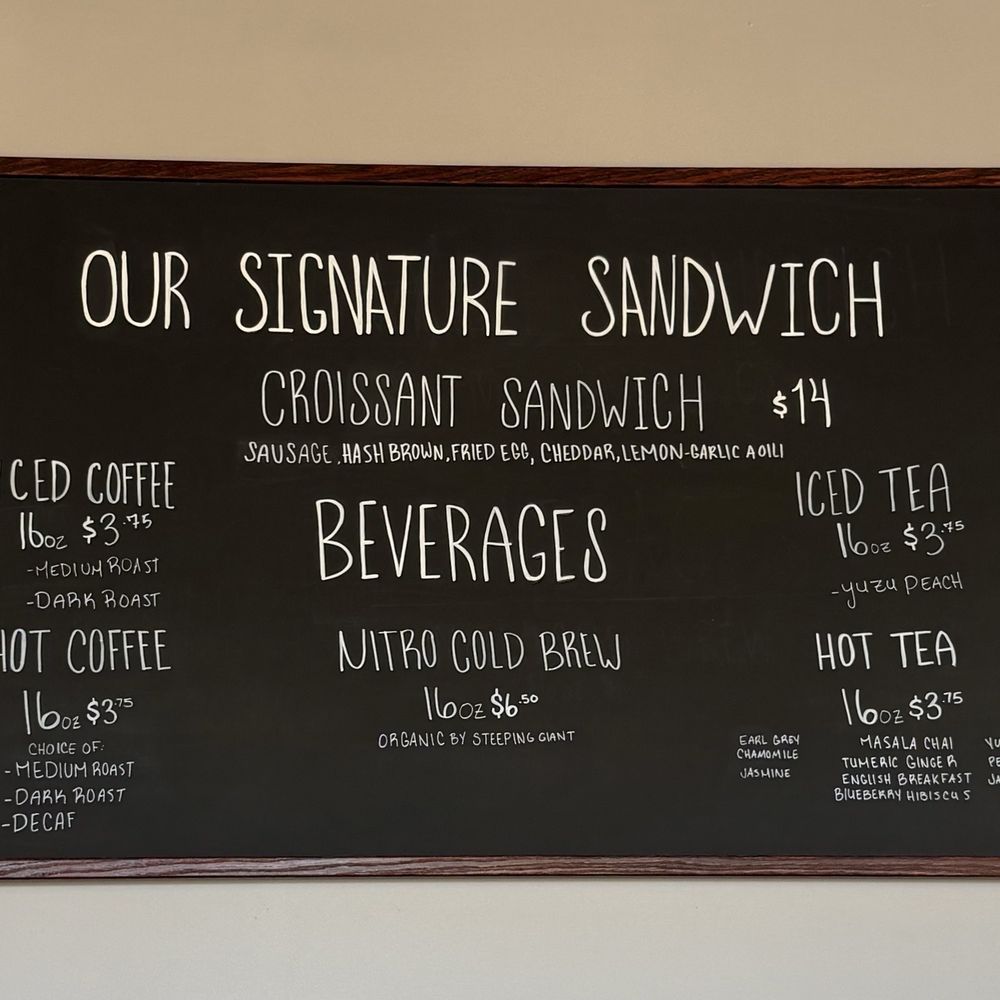 OUR SIGNATURE SANDWICH
CROISSANT SANDWICH $14
SAUSAGE, HASH BROWN, FRIED EGG, CHEDDAR, LEMON-GARLIC AOILI
CED COFFEE
16oz $3.75
-MEDIUM ROAST
-DARK ROAST
HOT COFFEE
16oz $3.75
CHOICE OF:
-MEDIUM ROAST
-DARK ROAST
-DECAF
BEVERAGES
NITRO COLD BREW
16oz $6.50
ORGANIC BY STEEPING GIANT
ICED TEA
16oz $3.75
-YUZU PEACH
HOT TEA
16oz $3.75
EARL GREY
CHAMOMILE
JASMINE
MASALA CHAI
TUMERIC GINGER
ENGLISH BREAKFAST
BLUEBERRY HIBISCUS
YU
PE
JA